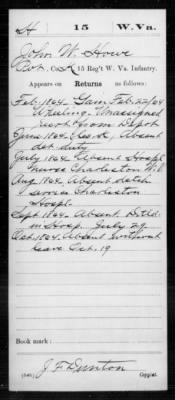 H 15 W. Va.
John W. Howe
Pvt., Co. K, 15 Reg't W. Va. Infantry.
Appears on
Returns as follows:
Feb. 1864. Gain Feb. 22/64
Wheeling. Unassigned
from Depot
June 1864. Absent
det. duty
July 1864. Absent Hospl.
nurse Charleston W. V.
Aug. 1864. Absent detch
service Charleston
Hospl.
Sept. 1864. Absent Detld.
in Hosp. July 29
Oct. 1864. Absent without
leave Oct. 19
Book mark:
J. F. Dunton
(546) Copyist.